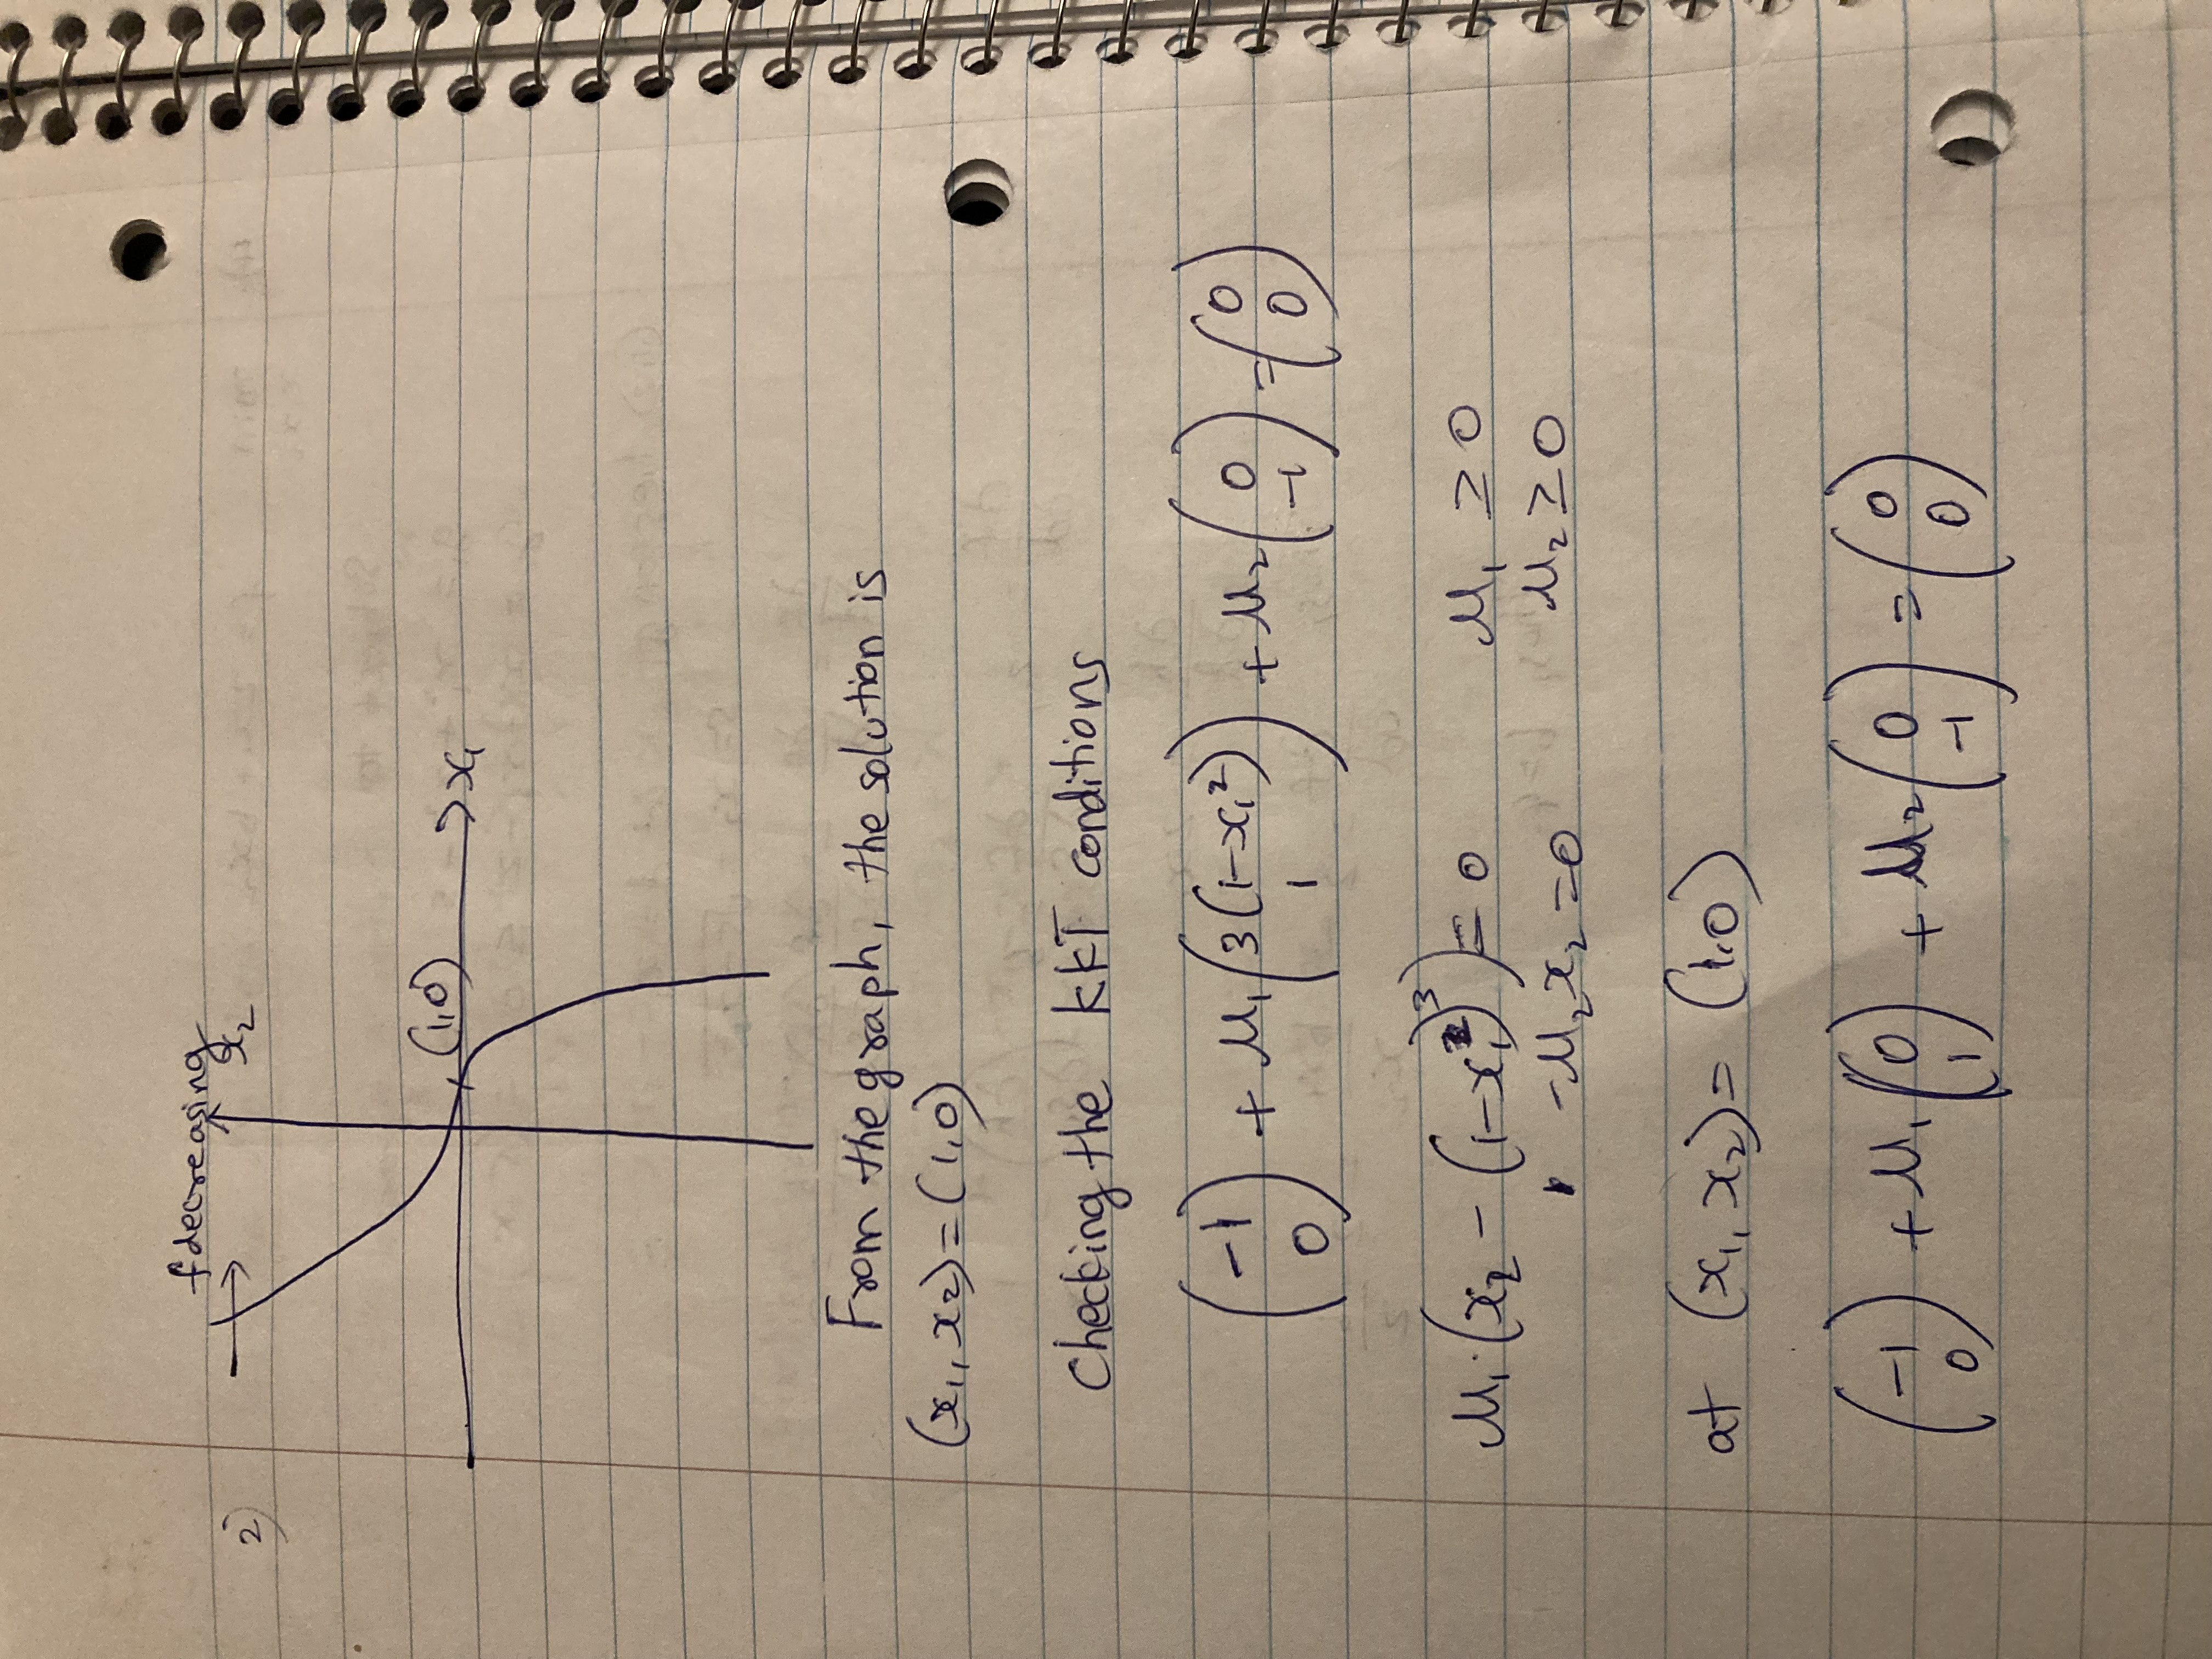 f decreasing
2)
x₂
(1,0)
x₁
From the graph, the solution is
(x₁, x₂) = (1,0)
Checking the KKT conditions
(-1 0) + μ₁ (3(1-x₁²) 1) + μ₂ (0 -1) = (0 0)
μ₁·(x₂ - (1-x₁)³) = 0 μ₁ ≥ 0
-μ₂x₂ = 0 μ₂ ≥ 0
at (x₁, x₂) = (1,0)
(-1 0) + μ₁ (0 1) + μ₂ (0 -1) = (0 0)